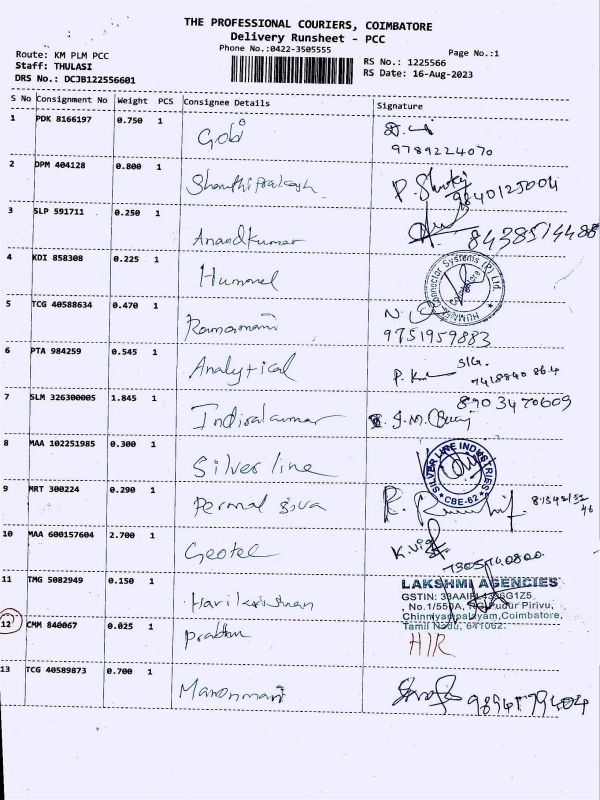 THE PROFESSIONAL COURIERS, COIMBATORE
Delivery Runsheet - PCC
Phone No.:0422-3505555
Page No.:1
Route: KM PLM PCC
RS No.: 1225566
Staff: THULASI
RS Date: 16-Aug-2023
DRS No.: DCJB122556601
S No Consignment No Weight PCS Consignee Details Signature
1 PDK 8166197 0.750 1 Gobi
9789224070
2 DPM 404128 0.800 1 Shanthi Prakash
9840125004
3 SLP 591711 0.250 1 Anandkumar
8438514488
4 KDI 858308 0.225 1 Hummel
5 TCG 40588634 0.470 1 Ramamani
9751959883
6 PTA 984259 0.545 1 Analytical
7418840864
7 SLM 326300005 1.845 1 Indirakumar
8903470609
8 MAA 102251985 0.300 1 Silver line
SILVER LINE INDUSTRIES
CBE-62
9 MRT 300224 0.290 1 Permal siva
10 MAA 600157604 2.700 1 Geotec
11 TMG 5082949 0.150 1 Harikrishnan
LAKSHMI AGENCIES
GSTIN:
No.1/550A, Pudur Pirivu,
Chinniyampalayam, Coimbatore,
Tamil Nadu, 641062.
12 CMM 840067 0.025 1 Prabhu
HIR
13 TCG 40589873 0.700 1 Manonmani
9894579404